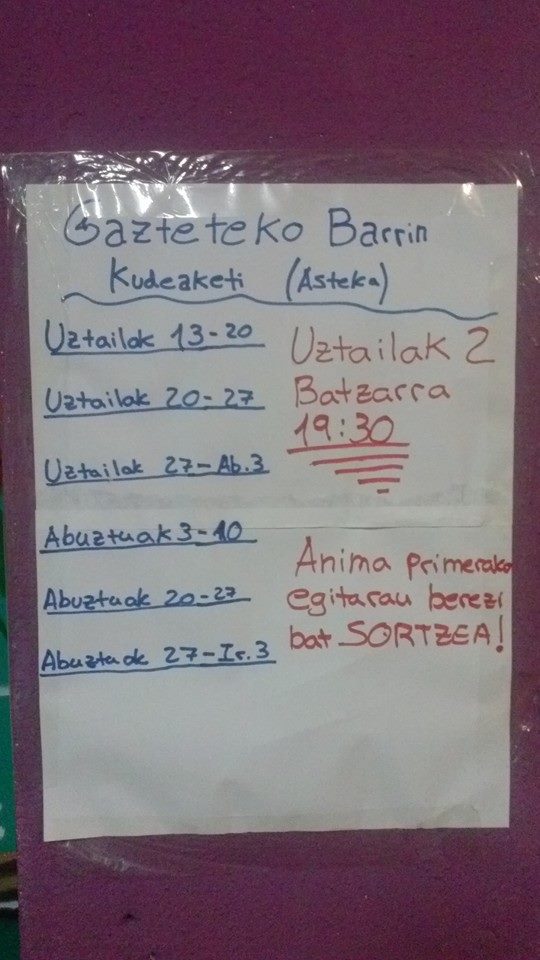 Gazteteko Barrin
Kudeaketi (Asteka)
Uztailak 13-20
Uztailak 20-27
Uztailak 27-Ab.3
Abuztuak 3-10
Abuztuak 20-27
Abuztuak 27-Ir.3
Uztailak 2
Batzarra
19:30
Anima primerako
egitarau berezi
bat SORTZEA!